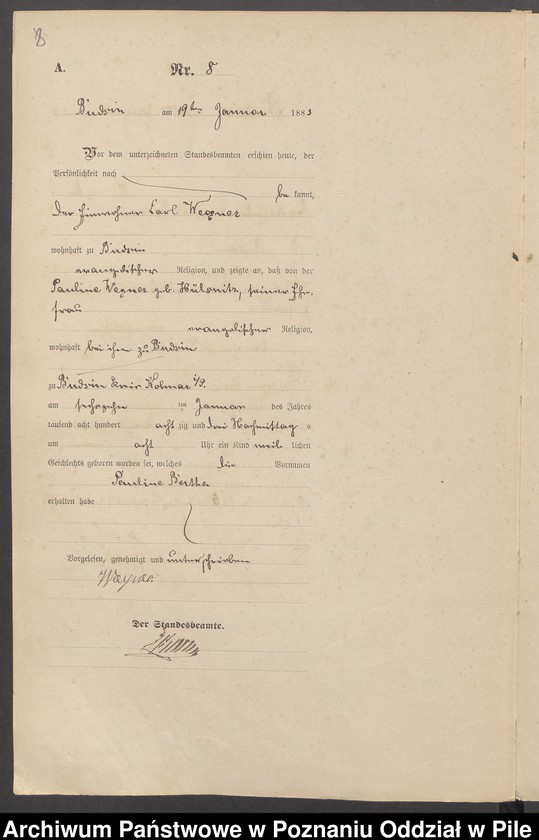 8
A.
Nr. 8
Budsin am 19ten Januar 1883
Vor dem unterzeichneten Standesbeamten erschien heute, der
Persönlichkeit nach
bekannt,
der Einwohner Carl Wegner
wohnhaft zu Budsin
evangelischer Religion, und zeigte an, daß von der
Pauline Wegner geb. Hülsnitz, seiner Ehe-
frau
evangelischer Religion,
wohnhaft bei ihm zu Budsin
zu Budsin Kreis Kolmar i/P.
am sechszehn ten Januar des Jahres
tausend acht hundert achtzig und drei Nachmittag s
um acht Uhr ein Kind weiblichen
Geschlechts geboren worden sei, welches die Vornamen
Pauline Bertha
erhalten habe
Vorgelesen, genehmigt und unterschrieben
Wegner
Der Standesbeamte.
Archiwum Państwowe w Poznaniu Oddział w Pile